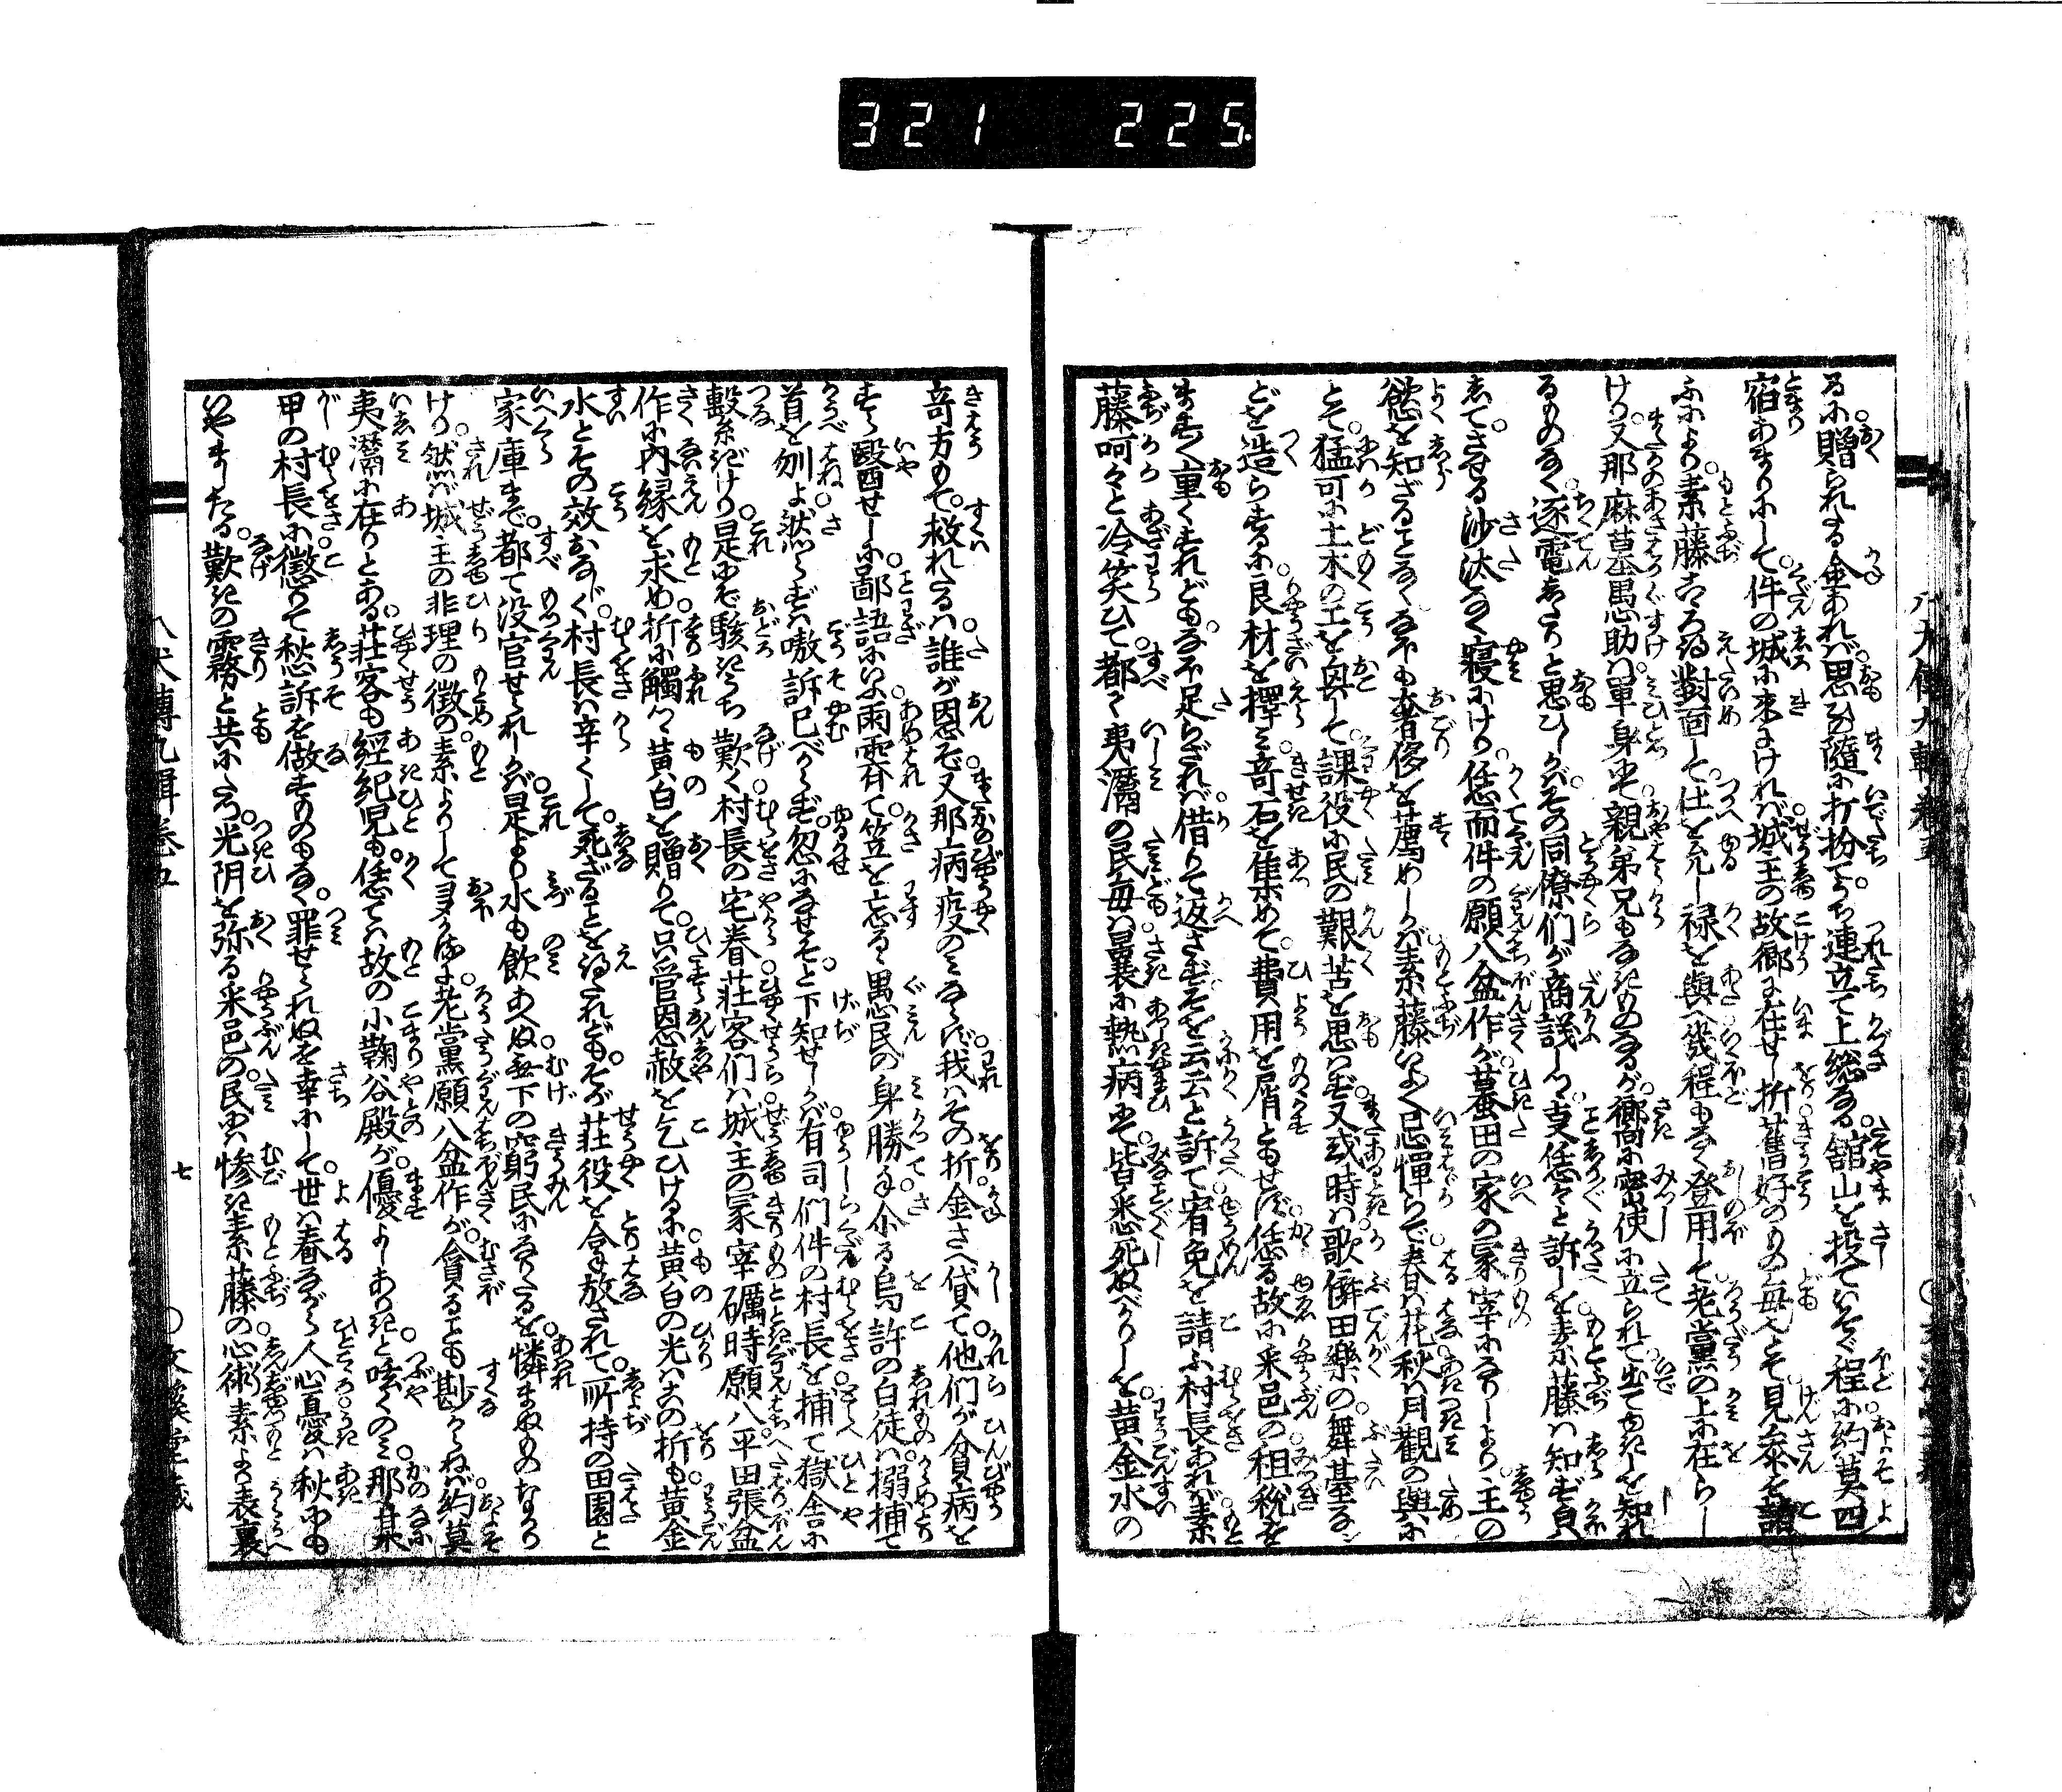 321 225
るに贈られたる金あれば思ひの隨に打扮てうち連立て上総なる舘山を投ていそぐ程に約莫四
宿あまりにして件の城に来にければ城主の故郷に在せし折舊好のもの毎とて見参を請
ふにより素藤こゝろ得對面して仕を允し禄を與へ幾程もなく登用して老黨の上に在らし
けり又那麻墓愚助は單身にて親弟兄もなきものなるが嚮に密使に立られて出てゆきしを知れ
るものなく逐電したりと思ひしかばその同僚們が商議しつゝ支恁々と訴しを素藤は知ず㒵
してさせる沙汰なく寝にけり恁而件の願八盆作が蟇田の家の家宰になりしより主の
慾を知ざることなくなほも奢侈を薦めしかば素藤いよゝ忌憚らで春は花秋は月觀の與に
とて猛可に土木の工を興して課役に民の艱苦を思はず又或時は歌儛田樂の舞臺な
どを造らするに良材を擇み奇石を集めて費用を屑ともせず恁る故に釆邑の租税を
ますます重くすれどもなほ足らざれば借りて返さずそを云云と訴て宥免を請ふ村長あれば素
藤呵々と冷笑ひて都て夷灊の民毎は曩に熱病にて皆悉死ぬべかりしを黄金水の
奇方もて救れたるは誰が恩ぞ又那病疫のみならず我はその折金さへ貸て他們が貧病を
すら醫せしに鄙語にいふ雨霽て笠を忘るゝ愚民の身勝手介る烏許の白徒は搦捕て
首を刎よ然らずは嗷訴已べからず忽になせそと下知せしかば有司們件の村長を捕て獄舎に
繋ぎけり是にぞ駭きうち歎く村長の宅眷荘客們は城主の家宰礪時願八平田張盆
作に内縁を求め折に觸つゝ黄白を贈りて只管恩赦を乞ひけるに黄白の光はこの折も黄金
水とその效おなじく村長は辛くして死ざることを得たれどもそが荘役を合放されて所持の田園と
家庫まで都て没官せられしかば是より水も飲あへぬ無下の窮民になりたるを憐まぬものなかり
けり然ば城主の非理の徴の素よりして なほ老黨願八盆作が貪ることも尠からねば約莫
夷灊に在りとある荘客も經紀児も恁ては故の小鞠谷殿が優ましありきと呟くのみ那某
甲の村長に懲りて愁訴を做すものもなく罪せられぬを幸にして世は春ながら人心憂は秋にも
いやましたる歎きの霧と共にたつ光阴を弥る釆邑の民には惨き素藤の心術素より表裏
八犬傳九輯巻五
七